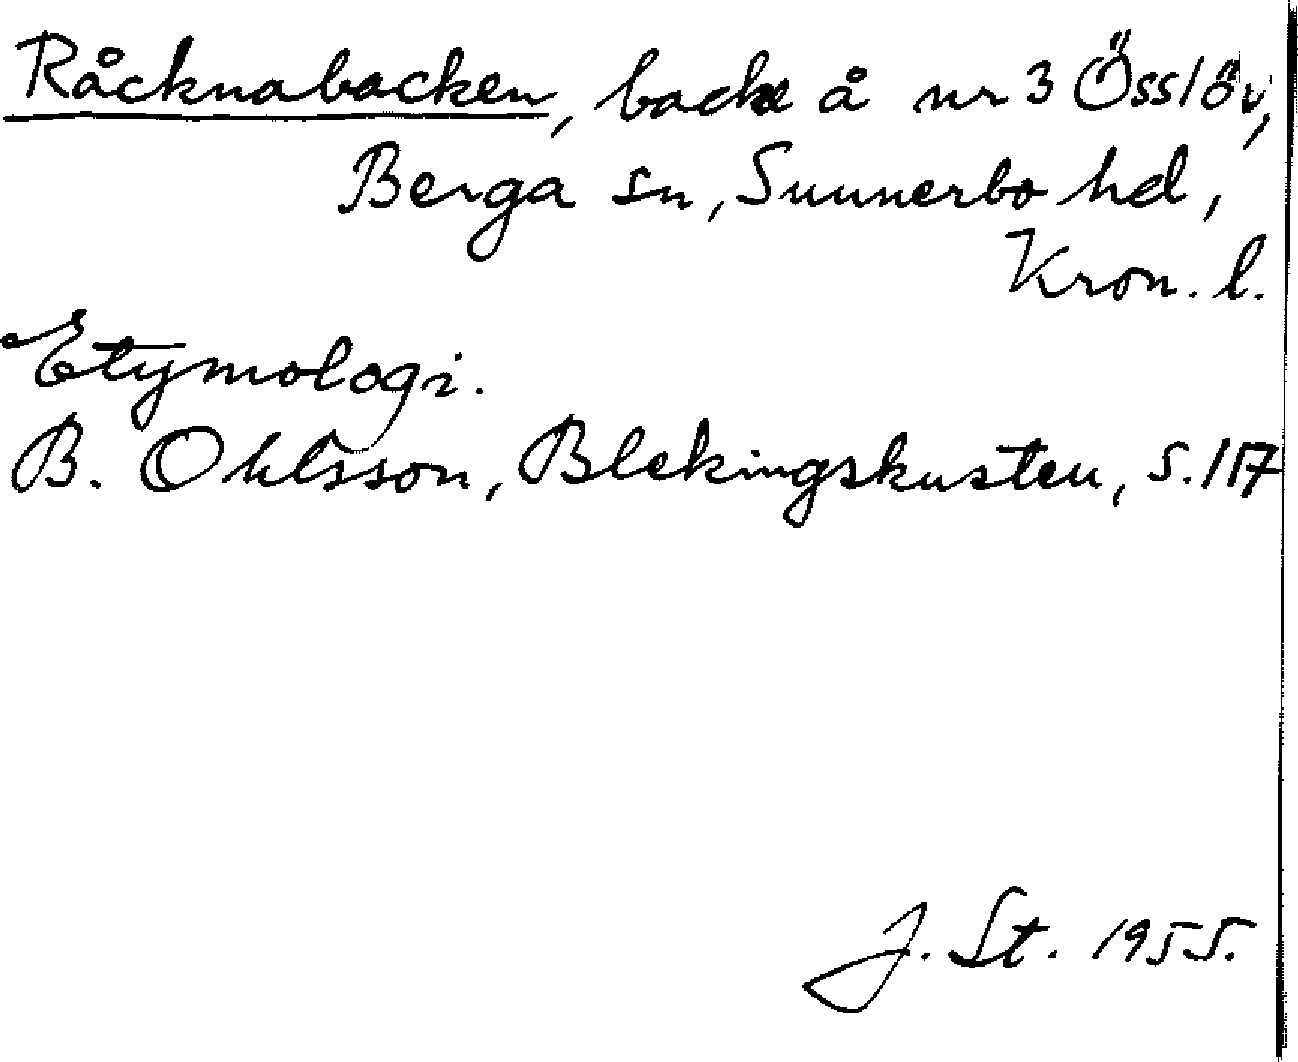 Råcknabacken, backe å nr 3 Össlöv,
Berga sn, Sunnerbo hd,
Kron. l.
Etymologi.
B. Ohlsson, Blekingskusten, s. 117
J. St. 1955.